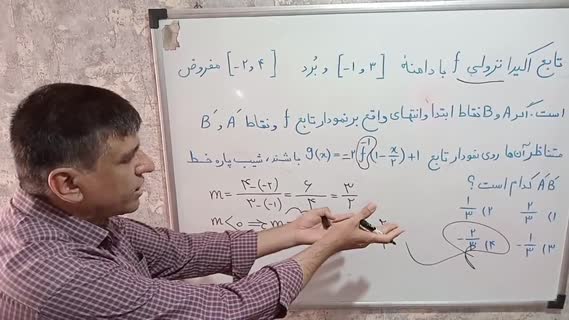 تابع اکیدا نزولی f با دامنهٔ [-۱ و ۳] و بُرد [-۲ و ۴] مفروض
است. اگر A و B نقاط ابتدا و انتهای واقع بر نمودار تابع f و نقاط A´ و B´
متناظر آن‌ها روی نمودار تابع g(x) = -۲f⁻¹(1-x/۲)+1 باشند، شیب پاره خط
A´B´ کدام است؟
m = ۴-(-۲)/۳-(-1) = ۶/۴ = ۳/۲
m<0 ⇒ m
۱) ۲/۳ ۲) 1/۳
۳) -1/۳ ۴) -۲/۳